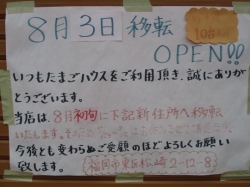 8月3日移転
OPEN!!
いつもたまごハウスをご利用頂き、誠にありが
とうございます。
当店は、8月初旬に下記新住所へ移転
いたします。
今後とも変わらぬご愛顧のほどよろしくお願い
致します。
(福岡市東区松崎2-12-8)